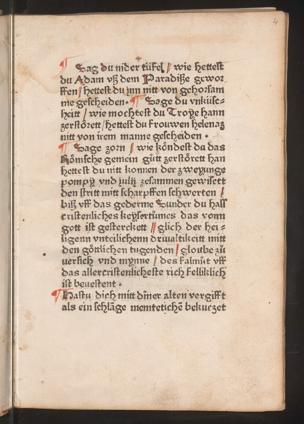 4
¶ Sag du nider tüfel / wie hettest
du Adam vß dem Paradiße gewor
ffen / hettest du inn nitt von gehorsam
me gescheiden · ¶ Soge du vnküsc-
heitt / wie mochtest du Troye hann
zerstörett / hettest du frouwen helenaz
nitt von irem manne gescheiden ·
¶ Sage zorn / wie köndest du das
Römsche gemein gütt zerstörett han
hettest du nitt konnen der zweyunge
pompÿ vnd iulÿ zesammen gewisett
den stritt mitt scharpffen schwerten /
biß vff das gederme Sunder du hast
cristenliches keysertumes das vonn
gott ist gesterckett // glich der hei-
ligenn vnteilichenn driualtikeitt mitt
den göttlichen tugenden / gloube zü
versich vnd mynne / des falmüt vff
das allercristenlicheste rich
ist beuestent ·
¶ Hastu dich mitt diner alten vergifft
als ein schlange